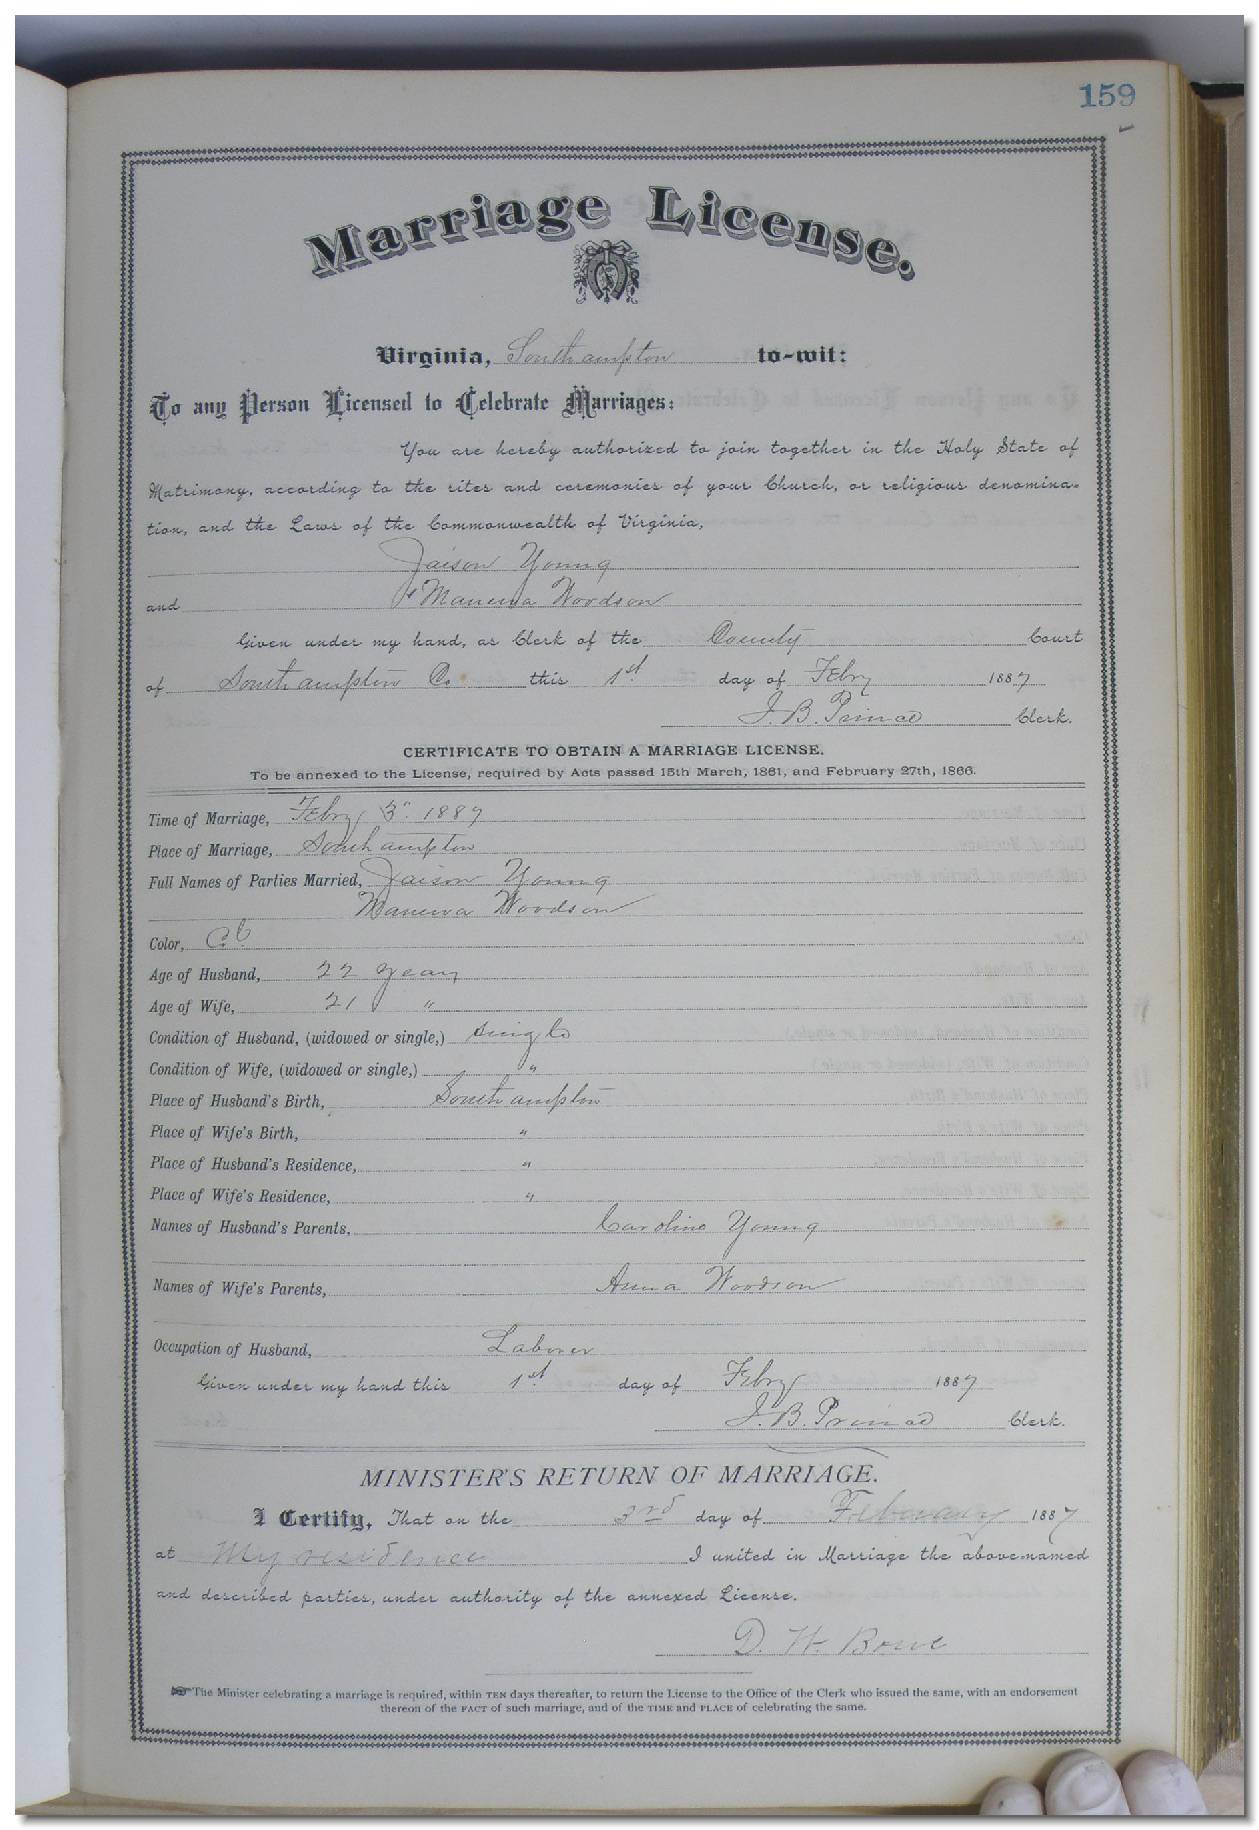 159
Marriage License.
Virginia, Southampton to-wit:
To any Person Licensed to Celebrate Marriages:
You are hereby authorized to join together in the Holy State of
Matrimony, according to the rites and ceremonies of your Church, or religious denomina-
tion, and the Laws of the Commonwealth of Virginia,
Jaison Young
and Manerva Woodson
Given under my hand, as Clerk of the County Court
of Southampton Co this 1st day of Febry 1887
J. B. Prince Clerk.
CERTIFICATE TO OBTAIN A MARRIAGE LICENSE.
To be annexed to the License, required by Acts passed 15th March, 1861, and February 27th, 1866.
Time of Marriage, Febry 3" 1887
Place of Marriage, Southampton
Full Names of Parties Married, Jaison Young
Manerva Woodson
Color, Col
Age of Husband, 22 years
Age of Wife, 21 "
Condition of Husband, (widowed or single,) single
Condition of Wife, (widowed or single,) "
Place of Husband's Birth, Southampton
Place of Wife's Birth, "
Place of Husband's Residence, "
Place of Wife's Residence, "
Names of Husband's Parents, Caroline Young
Names of Wife's Parents, Anna Woodson
Occupation of Husband, Laborer
Given under my hand this 1st day of Febry 1887
J. B. Prince Clerk.
MINISTER'S RETURN OF MARRIAGE.
I Certify, That on the 3rd day of February 1887
at My residence I united in Marriage the above-named
and described parties, under authority of the annexed License.
D. W.
The Minister celebrating a marriage is required, within TEN days thereafter, to return the License to the Office of the Clerk who issued the same, with an endorsement
thereon of the FACT of such marriage, and of the TIME and PLACE of celebrating the same.